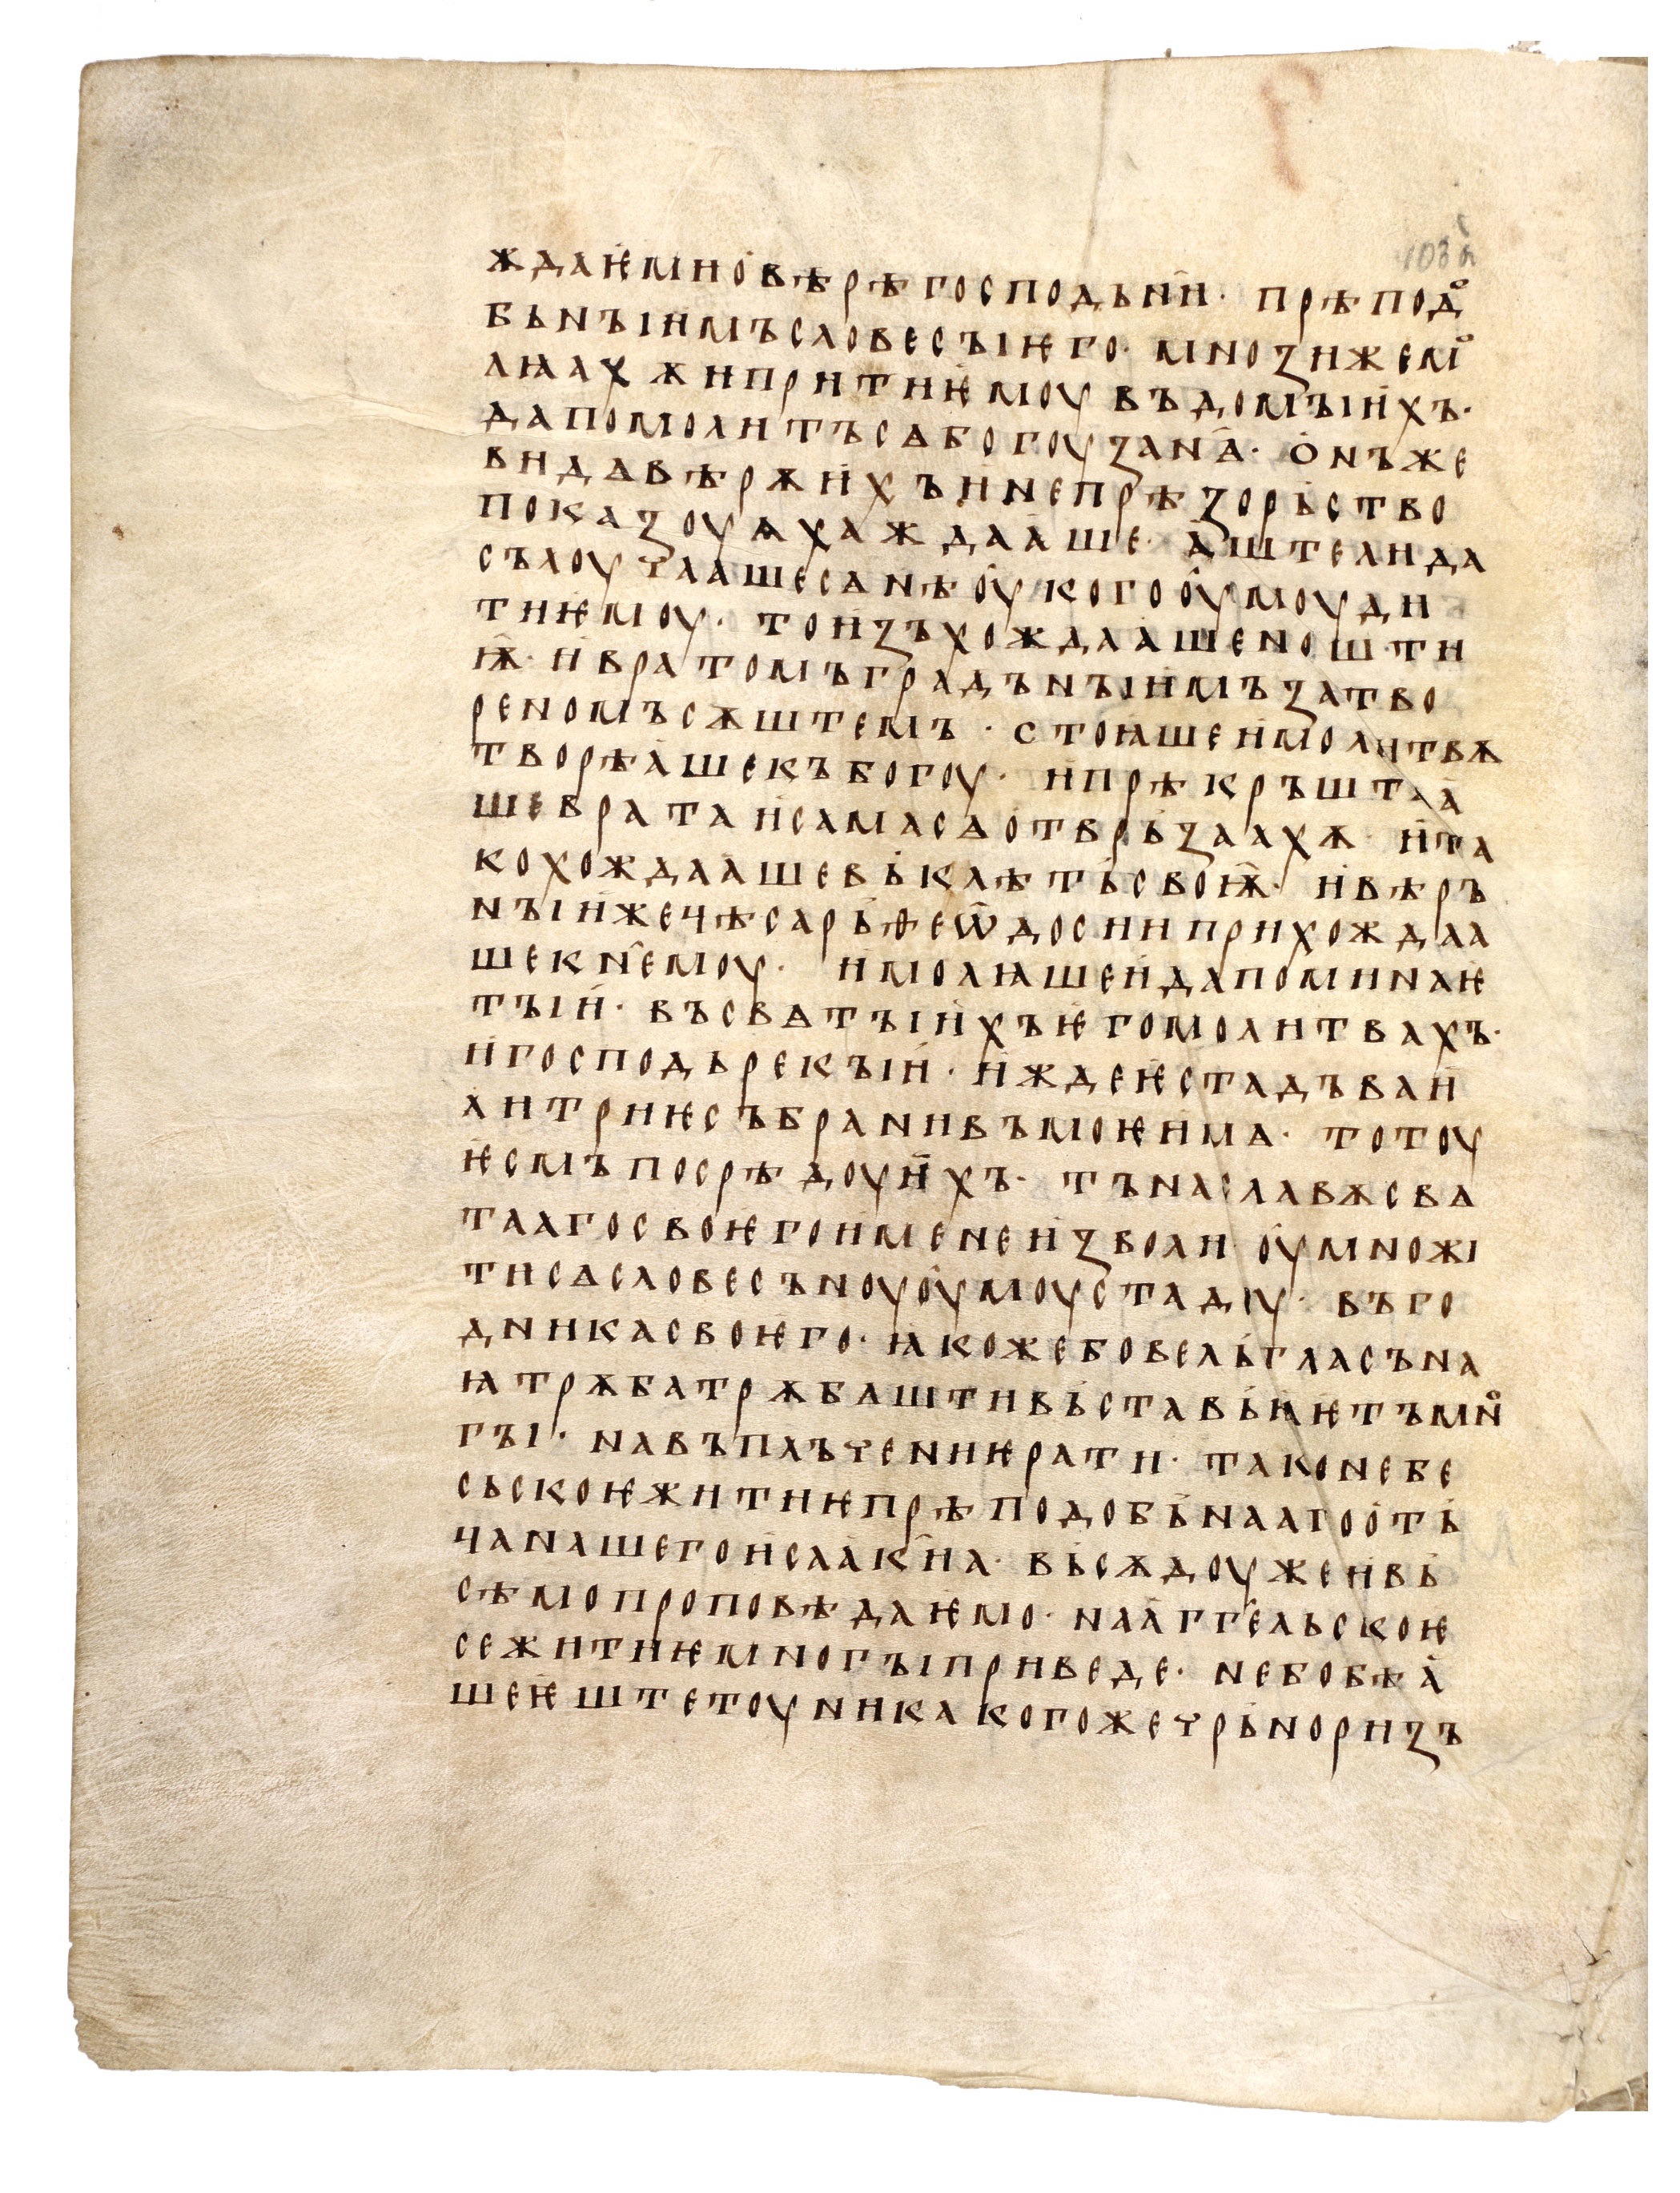 103 б
ждаѥмно вѣрѣ господьн҄и · прѣподо
бьнꙑимъ словесꙑ ѥго · мнози же мо
лꙗахѫ и прити ѥмоу въ домꙑ ихъ ·
да помолитъ сѧ богоу за нѧ · онъ же
видѧ вѣрѫ ихъ и непрѣзорьство
показоуѩ хаждааше · аште ли да
сълоучааше сѧ нѣ оу кого оумоуди
ти ѥмоу · то изъхождааше ноштн
ѭ · и вратомъ градънꙑимъ затво
реномъ сѫштемъ · стоꙗше и молитвѫ
творѣаше къ богоу · и прѣкръштаа
ше врата и сама сѧ отврьзаахѫ · и та
ко хождааше вь клѣть своѭ · и вѣръ
нꙑи же цѣсарь ѳеѡдосии прихождаа
ше к н҄емоу · и молꙗше и да поминаѥ
тꙑи · въ свѧтꙑихъ ѥго молитвахъ ·
и господь рекꙑи · иждеѥста дъва и
ли триѥ събрани въ моѥ имѧ · то тоу
ѥсмъ посрѣдоу ихъ · тъ на славѫ свѧ
тааго своѥго имене изволи оумножі
ти сѧ словесъноуоумоу стадоу · въ го
дникa своѥго · ꙗкоже бо вель гласъна
ꙗ трѫба трѫбѧшти въставьꙗѥтъ мно
гꙑ · на въплъчениѥ рати · тако небе
сьскоѥ житиѥ прѣподобьнааго отъ
ца нашего исаакиа · вьсѫдоу же и вь
сѣмо проповѣдаѥмо · на аггельскоѥ
се житиѥ многꙑ приведе · не бо бѣа
ше ѥште тоу никакогоже чрьноризъ